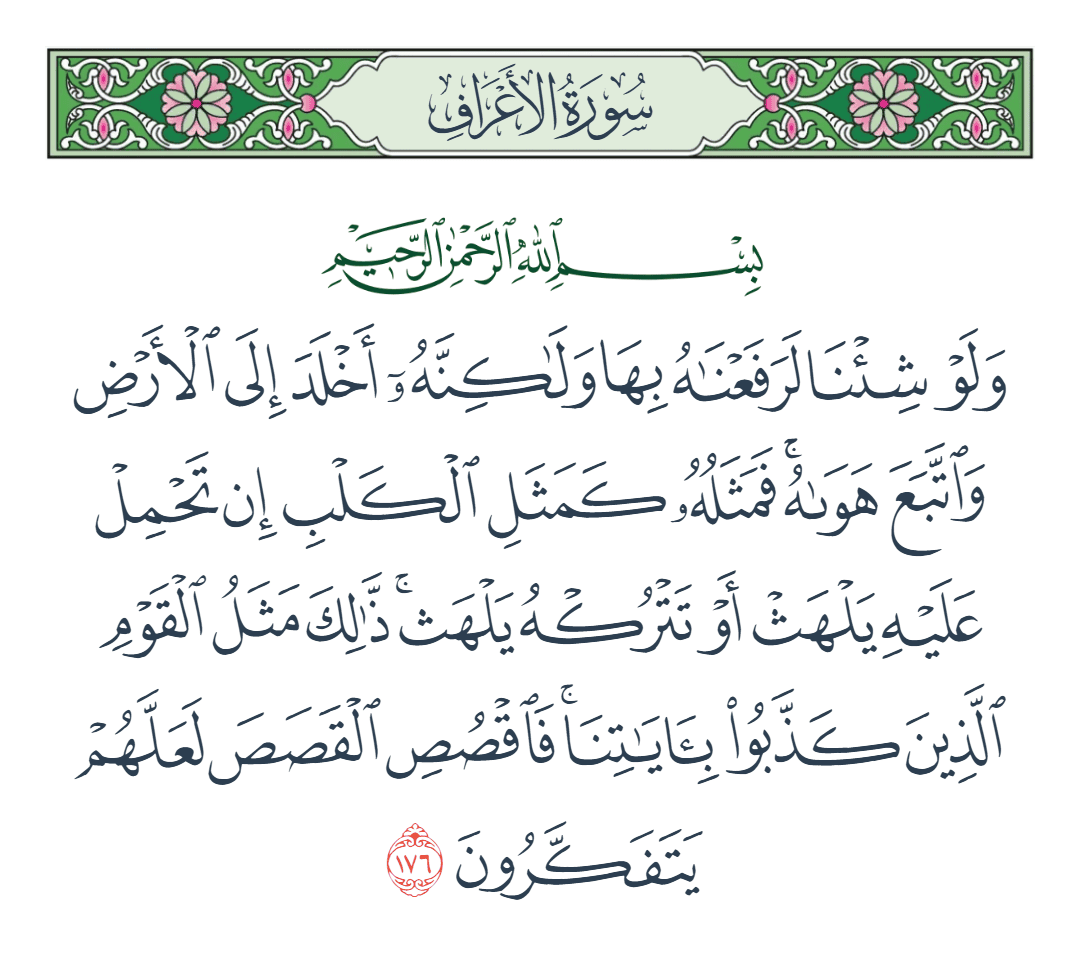 سُورَةُ الْأَعْرَافِ
بِسْمِ ٱللَّهِ ٱلرَّحْمَٰنِ ٱلرَّحِيمِ
وَلَوْ شِئْنَا لَرَفَعْنَٰهُ بِهَا وَلَٰكِنَّهُۥٓ أَخْلَدَ إِلَى ٱلْأَرْضِ
وَٱتَّبَعَ هَوَىٰهُ ۚ فَمَثَلُهُۥ كَمَثَلِ ٱلْكَلْبِ إِن تَحْمِلْ
عَلَيْهِ يَلْهَثْ أَوْ تَتْرُكْهُ يَلْهَث ۚ ذَّٰلِكَ مَثَلُ ٱلْقَوْمِ
ٱلَّذِينَ كَذَّبُوا۟ بِـَٔايَٰتِنَا ۚ فَٱقْصُصِ ٱلْقَصَصَ لَعَلَّهُمْ
يَتَفَكَّرُونَ ١٧٦